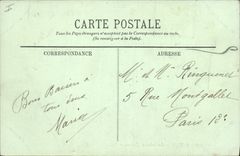 CARTE POSTALE
Tous les Pays étrangers n'acceptent pas la Correspondance au recto.
(Se renseigner à la Poste).
CORRESPONDANCE
ADRESSE
Bons Baisers à
tous deux
Maria
M. & Mme Ringuenet
5 Rue Montgallet
Paris 12e